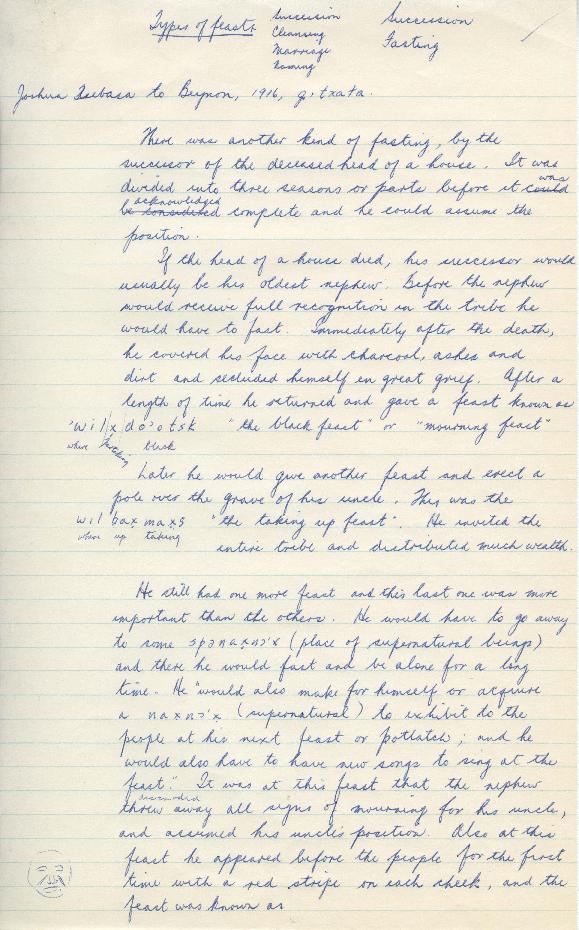 Types of feasts
Succession
Cleansing
Marriage
Naming
Succession
Fasting
Joshua Tsibasa to Beynon, 1916, gitxata.
There was another kind of fasting, by the
successor of the deceased head of a house. It was
divided into three seasons or parts before it could was
be considered acknowledged complete and he could assume the
position.
If the head of a house died, his successor would
usually be his oldest nephew. Before the nephew
would receive full recognition in the tribe he
would have to fast. Immediately after the death,
he covered his face with charcoal, ashes and
dirt and secluded himself in great grief. After a
length of time he returned and gave a feast known as
'wilx do'otsk "the black feast" or "mourning feast"
where black
Later he would give another feast and erect a
pole over the grave of his uncle. This was the
wil bax maxs "the taking up feast". He invited the
where up taking
entire tribe and distributed much wealth.
He still had one more feast and this last one was more
important than the others. He would have to go away
to some spənaxnɔ'x (place of supernatural beings)
and there he would fast and be alone for a long
time. He "would also make for himself or acquire
a naxnɔ'x (supernatural) to exhibit to the
people at his next feast or potlatch; and he
would also have to have new songs to sing at the
feast." It was at this feast that the nephew
discarded
threw away all signs of mourning for his uncle,
and assumed his uncle's position. Also at this
feast he appeared before the people for the first
time with a red stripe on each cheek, and the
feast was known as